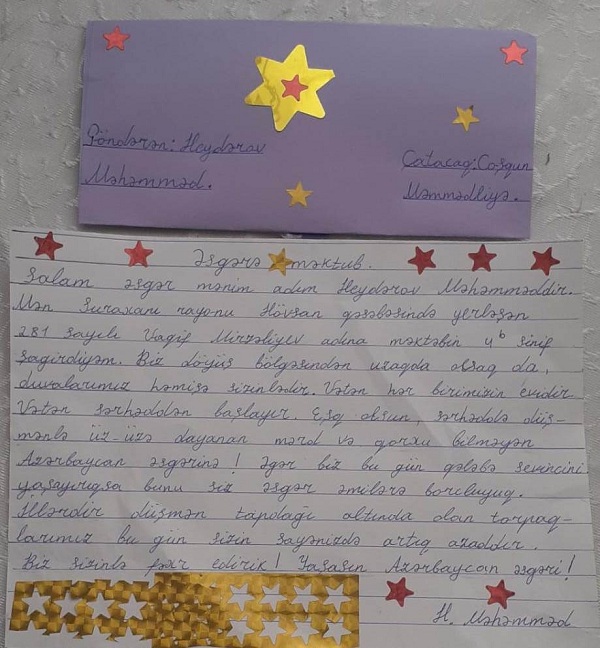 Göndərən: Heydərov
Məhəmməd.
Çatacaq: Coşqun
Məmmədliyə.
Əsgərə məktub.
Salam əsgər mənim adım Heydərov Məhəmməddir.
Mən Suraxanı rayonu Hövsan qəsəbəsində yerləşən
281 sayılı Vaqif Mirzəliyev adına məktəbin 4ᵇ sinif
şagirdiyəm. Biz döyüş bölgəsindən uzaqda olsaq da,
duvalarımız həmişə sizinlədir. Vətən hər birimizin evidir.
Vətən sərhəddən başlayır. Eşq olsun, sərhəddə düş-
mənlə üz-üzə dayanan mərd və qorxu bilməyən
Azərbaycan əsgərinə! Əgər biz bu gün qələbə sevincini
yaşayırıqsa bunu siz əsgər əmilərə borcluyuq.
İllərdir düşmən tapdağı altında olan torpaq-
larımız bu gün sizin sayənizdə artıq azaddır.
Biz sizinlə fəxr edirik! Yaşasın Azərbaycan əsgəri!
H. Məhəmməd